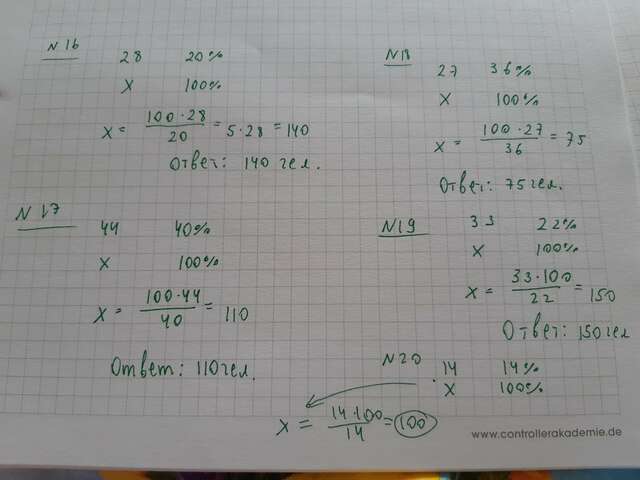 N 16
28 20%
X 100%
X = 100·28/20 = 5·28 = 140
Ответ: 140 чел.
N 17
44 40%
X 100%
X = 100·44/40 = 110
Ответ: 110 чел.
N18
27 36%
X 100%
X = 100·27/36 = 75
Ответ: 75 чел.
N19
33 22%
X 100%
X = 33·100/22 = 150
Ответ: 150 чел
N20
14 14%
X 100%
X = 14·100/14 = 100
www.controllerakademie.de